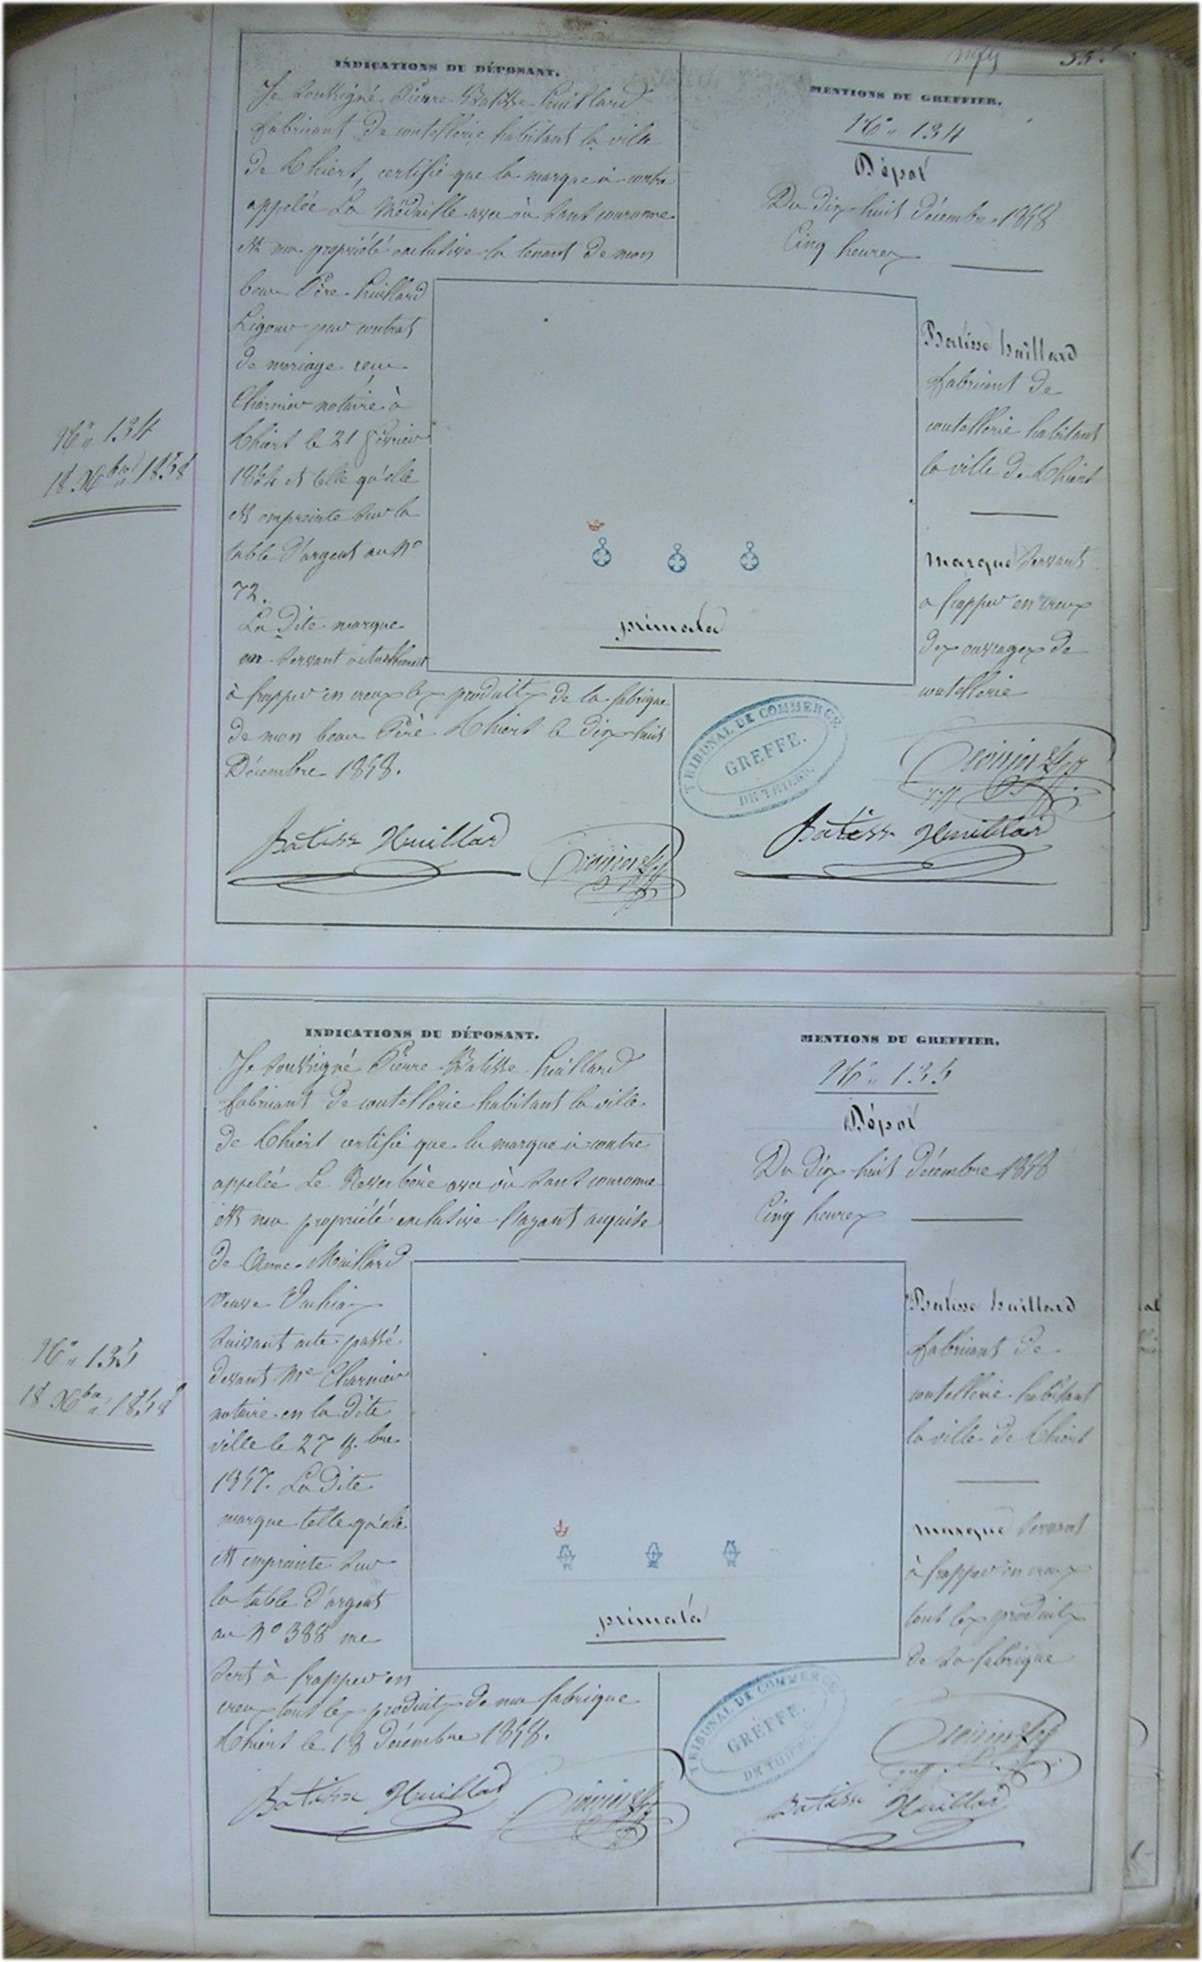 55.
INDICATIONS DU DÉPOSANT.
Je soussigné Pierre Batisse huillard
fabricant de coutellerie habitant la ville
de Thiert, certifie que la marque ci contre
appelée La Médaille avec ou sant couronne
est ma propriété exclusive la tenant de mon
beau Père huillard
Ligour par contrat
de mariage reçu
Charnier notaire à
Thiert le 21 février
1854 et telle qu'elle
est empreinte sur la
table d'argent au No
72.
La dite marque
en servant actuellement
à frapper en creux les produits de la fabrique
de mon beau Père Thiert le dix huit
Décembre 1858.
Batisse Huillard
MENTIONS DU GREFFIER.
No 134
Dépot
Du dix huit décembre 1858
Cinq heures
Batisse huillard
fabricant de
coutellerie habitant
la ville de Thiert
marque servant
a frapper en creux
des ouvrages de
coutellerie
primata
TRIBUNAL DE COMMERCE
GREFFE.
DE THIERS
Batisse Huillard
No 134
18 Xbre 1858
INDICATIONS DU DÉPOSANT.
Je soussigné Pierre Batisse huillard
fabricant de coutellerie habitant la ville
de Thiert certifie que la marque ci contre
appelée Le Reverbère avec ou sant couronne
est ma propriété exclusive l'ayant acquise
de Anne Maillard
veuve
suivant acte passé
devant Me Charnier
notaire en la dite
ville le 27 bre
1857. La dite
marque telle qu'elle
est empreinte sur
la table d'argent
au No 388 me
sert à frapper en
creux tout les produits de ma fabrique
Thiert le 18 décembre 1858.
Batisse Huillard
MENTIONS DU GREFFIER.
No 135
Dépot
Du dix huit décembre 1858
Cinq heures
Batisse huillard
fabricant de
coutellerie habitant
la ville de Thiert
marque servant
à frapper en creux
tout les produits
de sa fabrique
primata
TRIBUNAL DE COMMERCE
GREFFE.
DE THIERS
Batisse Huillard
No 135
18 Xbre 1858